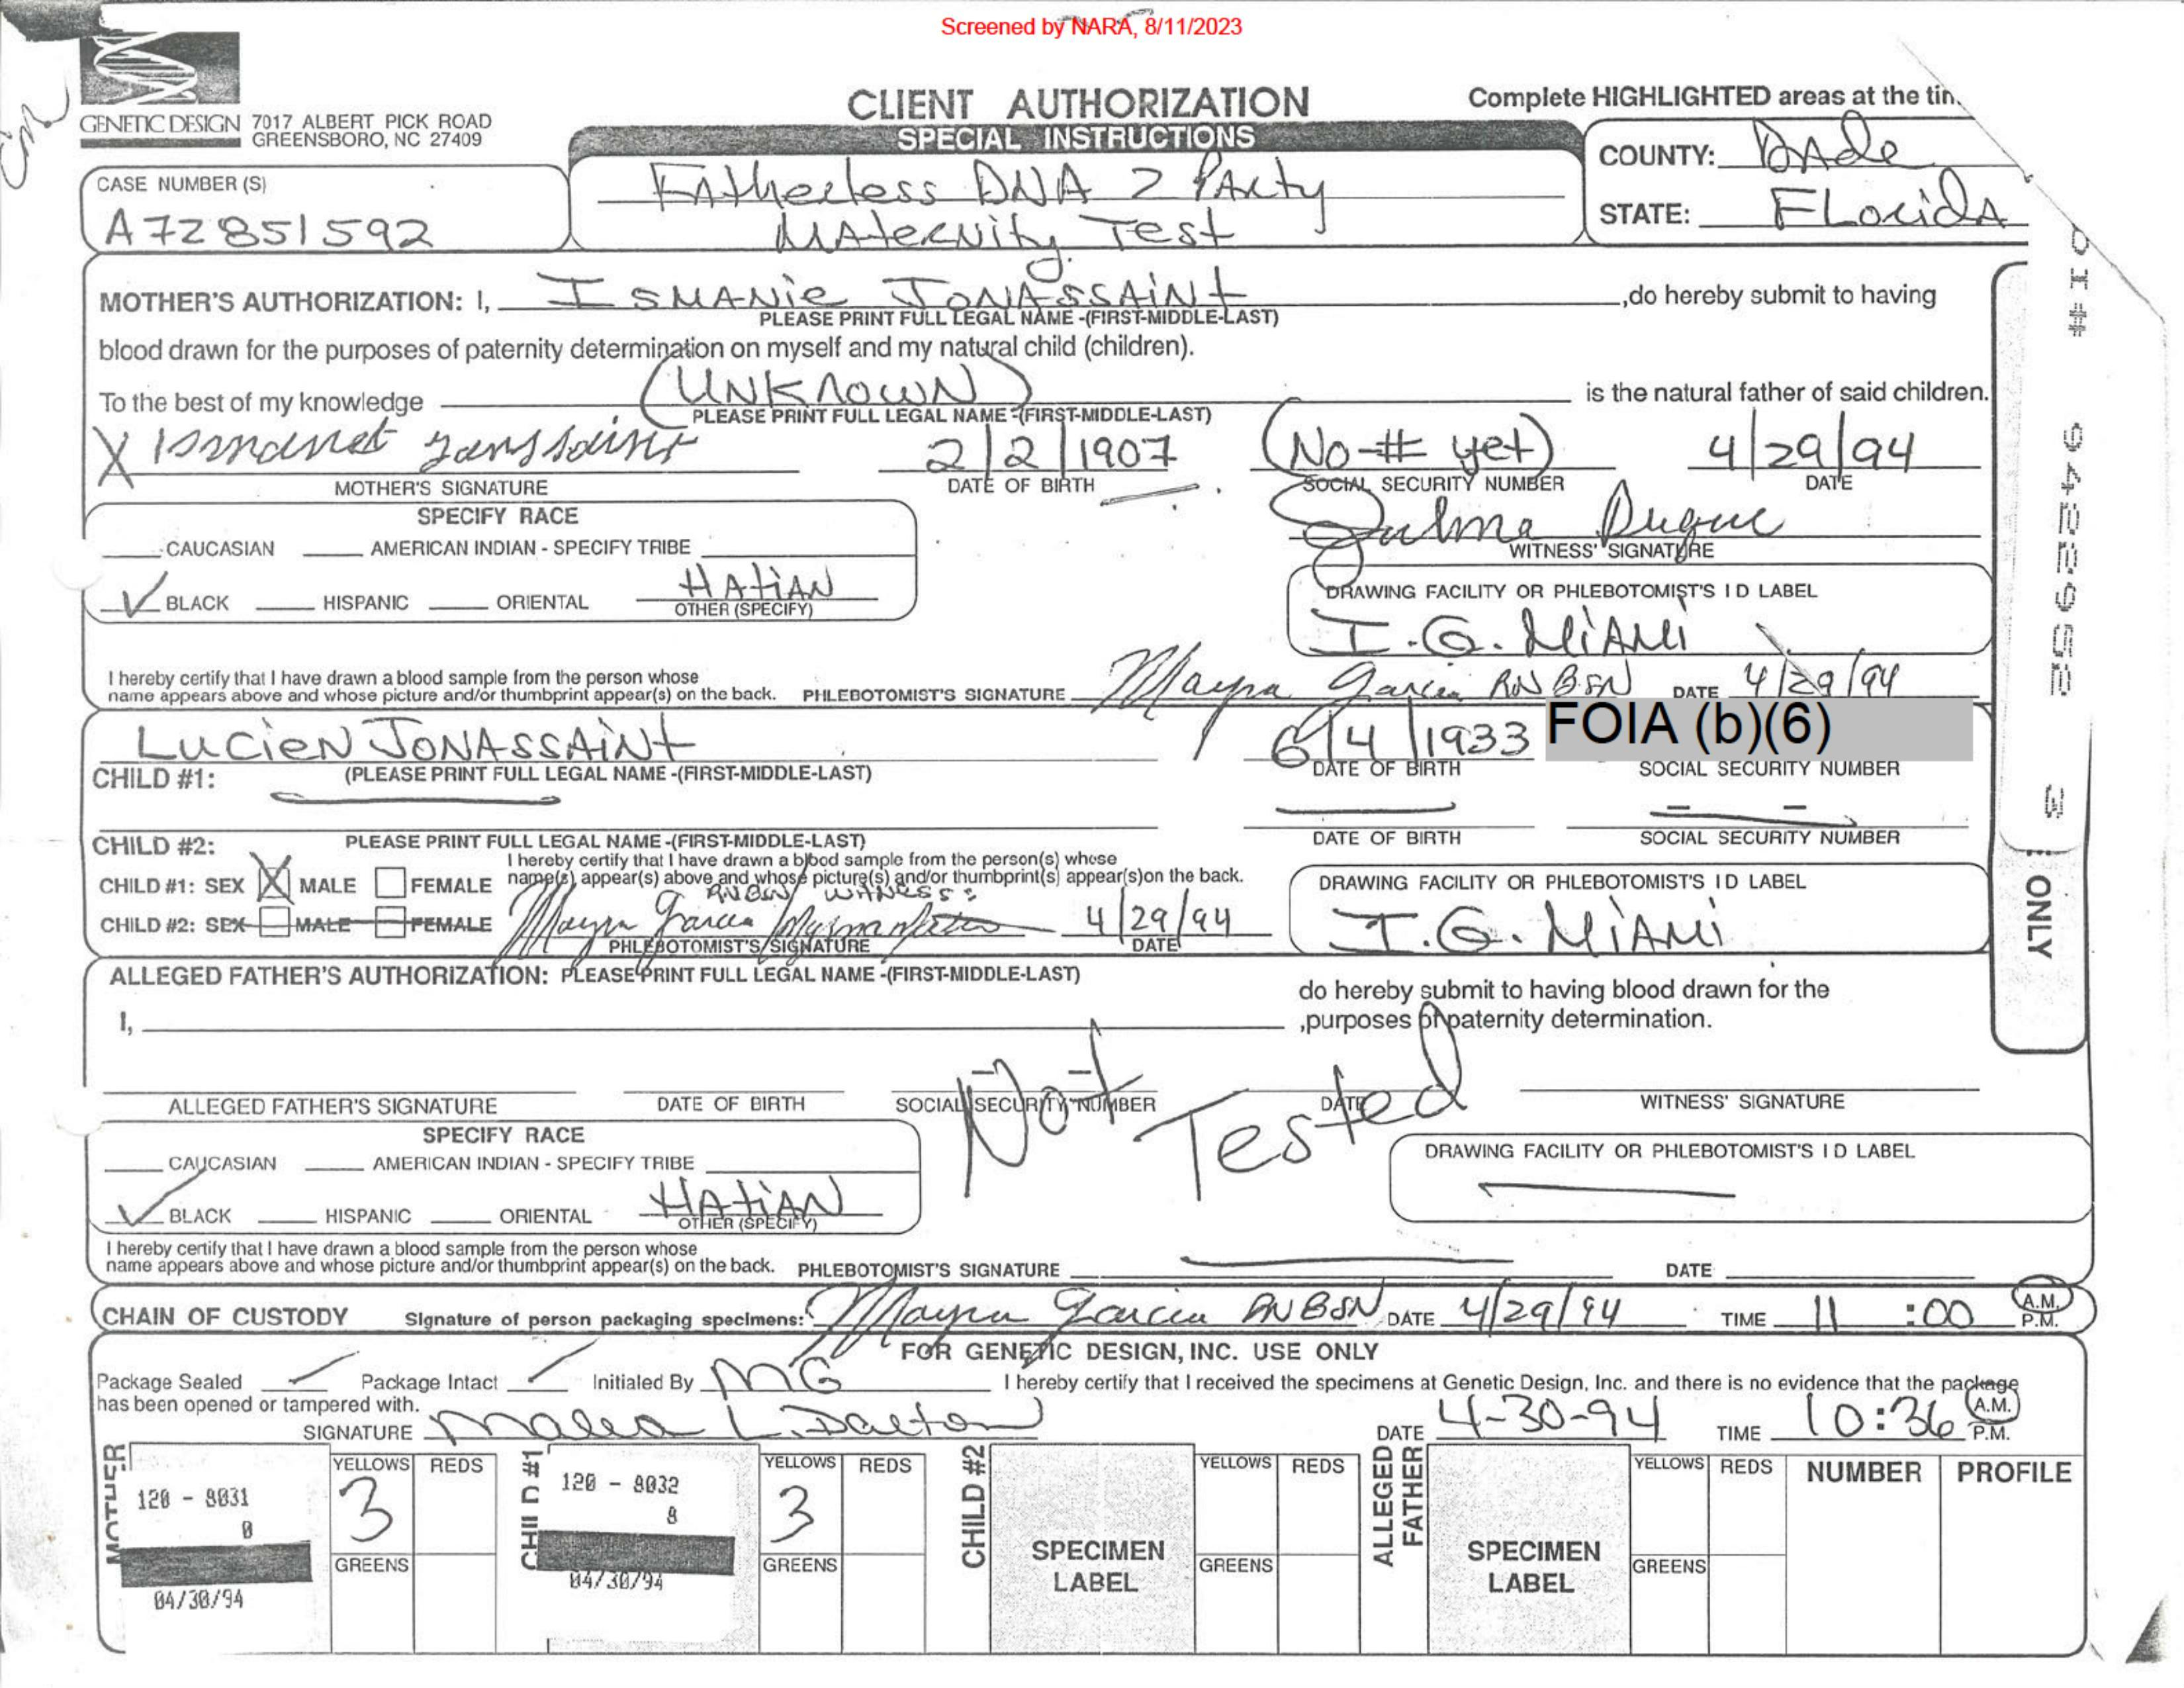 Screened by NARA, 8/11/2023
GENETIC DESIGN
7017 ALBERT PICK ROAD
GREENSBORO, NC 27409
CLIENT AUTHORIZATION
SPECIAL INSTRUCTIONS
Complete HIGHLIGHTED areas at the
CASE NUMBER (S)
A72851592
Fatherless DNA 2 Party
Maternity Test
COUNTY: DADE
STATE: Florida
MOTHER'S AUTHORIZATION: I, ISMANIE JONASSAINT ,do hereby submit to having
PLEASE PRINT FULL LEGAL NAME -(FIRST-MIDDLE-LAST)
blood drawn for the purposes of paternity determination on myself and my natural child (children).
To the best of my knowledge (UNKNOWN) is the natural father of said children.
PLEASE PRINT FULL LEGAL NAME -(FIRST-MIDDLE-LAST)
X 2/2/1907 (No # yet) 4/29/94
MOTHER'S SIGNATURE DATE OF BIRTH SOCIAL SECURITY NUMBER DATE
SPECIFY RACE
CAUCASIAN AMERICAN INDIAN - SPECIFY TRIBE
BLACK HISPANIC ORIENTAL HATIAN
OTHER (SPECIFY)
Zulma Duque
WITNESS' SIGNATURE
DRAWING FACILITY OR PHLEBOTOMIST'S I D LABEL
I.G. MIAMI
I hereby certify that I have drawn a blood sample from the person whose
name appears above and whose picture and/or thumbprint appear(s) on the back. PHLEBOTOMIST'S SIGNATURE Mayra Garcia RN BSN DATE 4/29/94
LUCIEN JONASSAINT 6/4/1933 FOIA (b)(6)
CHILD #1: (PLEASE PRINT FULL LEGAL NAME -(FIRST-MIDDLE-LAST) DATE OF BIRTH SOCIAL SECURITY NUMBER
CHILD #2: PLEASE PRINT FULL LEGAL NAME -(FIRST-MIDDLE-LAST) DATE OF BIRTH SOCIAL SECURITY NUMBER
I hereby certify that I have drawn a blood sample from the person(s) whose
name(s) appear(s) above and whose picture(s) and/or thumbprint(s) appear(s)on the back.
CHILD #1: SEX X MALE FEMALE
CHILD #2: SEX MALE FEMALE
RN BSN WITNESS:
Mayra Garcia 4/29/94
PHLEBOTOMIST'S SIGNATURE DATE
DRAWING FACILITY OR PHLEBOTOMIST'S I D LABEL
I.G. MIAMI
ONLY
ALLEGED FATHER'S AUTHORIZATION: PLEASE PRINT FULL LEGAL NAME -(FIRST-MIDDLE-LAST)
do hereby submit to having blood drawn for the
I, ,purposes of paternity determination.
Not Tested
ALLEGED FATHER'S SIGNATURE DATE OF BIRTH SOCIAL SECURITY NUMBER DATE WITNESS' SIGNATURE
SPECIFY RACE
CAUCASIAN AMERICAN INDIAN - SPECIFY TRIBE
BLACK HISPANIC ORIENTAL HATIAN
OTHER (SPECIFY)
DRAWING FACILITY OR PHLEBOTOMIST'S I D LABEL
I hereby certify that I have drawn a blood sample from the person whose
name appears above and whose picture and/or thumbprint appear(s) on the back. PHLEBOTOMIST'S SIGNATURE DATE
CHAIN OF CUSTODY Signature of person packaging specimens: Mayra Garcia RN BSN DATE 4/29/94 TIME 11:00 A.M. P.M.
FOR GENETIC DESIGN, INC. USE ONLY
Package Sealed Package Intact Initialed By MG I hereby certify that I received the specimens at Genetic Design, Inc. and there is no evidence that the package
has been opened or tampered with.
SIGNATURE L. Dalton DATE 4-30-94 TIME 10:36 A.M. P.M.
MOTHER
120 - 8031
0
04/30/94
YELLOWS REDS
3
GREENS
CHILD #1
120 - 8032
8
04/30/94
YELLOWS REDS
3
GREENS
CHILD #2
SPECIMEN
LABEL
YELLOWS REDS
GREENS
ALLEGED
FATHER
SPECIMEN
LABEL
YELLOWS REDS
GREENS
NUMBER PROFILE